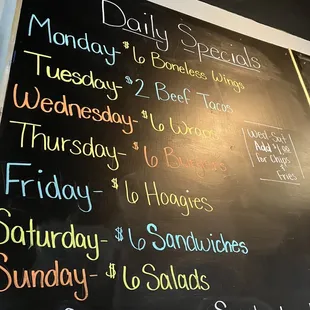 Daily Specials
Monday - $6 Boneless Wings
Tuesday - $2 Beef Tacos
Wednesday - $6 Wraps
Thursday - $6
Friday - $6 Hoagies
Saturday - $6 Sandwiches
Sunday - $6 Salads
Add $1.00
for Chips
Fries